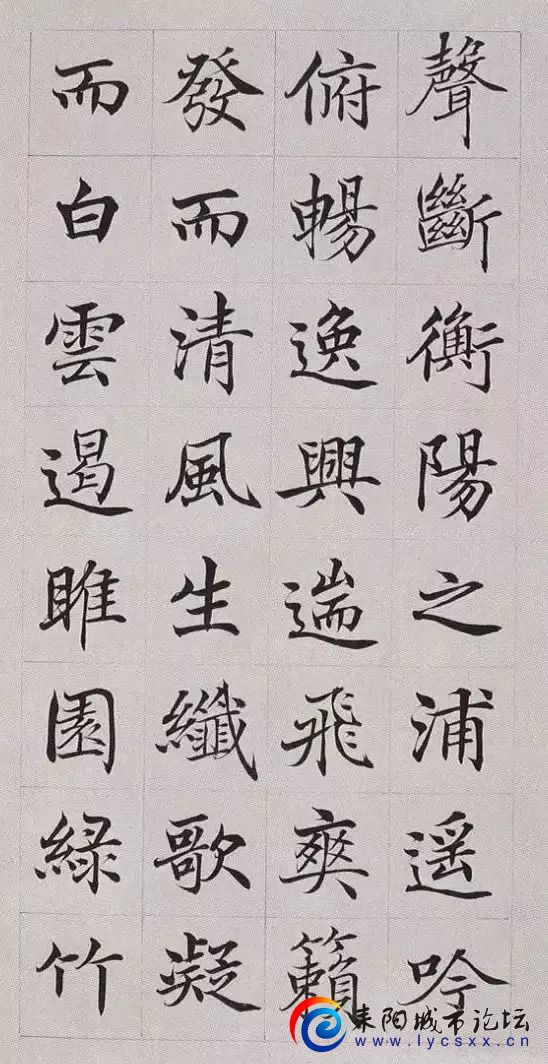 聲斷衡陽之浦遥吟
俯暢逸興遄飛爽籟
發而清風生纖歌凝
而白雲遏睢園緑竹
耒阳城市论坛
www.lycsxx.cn